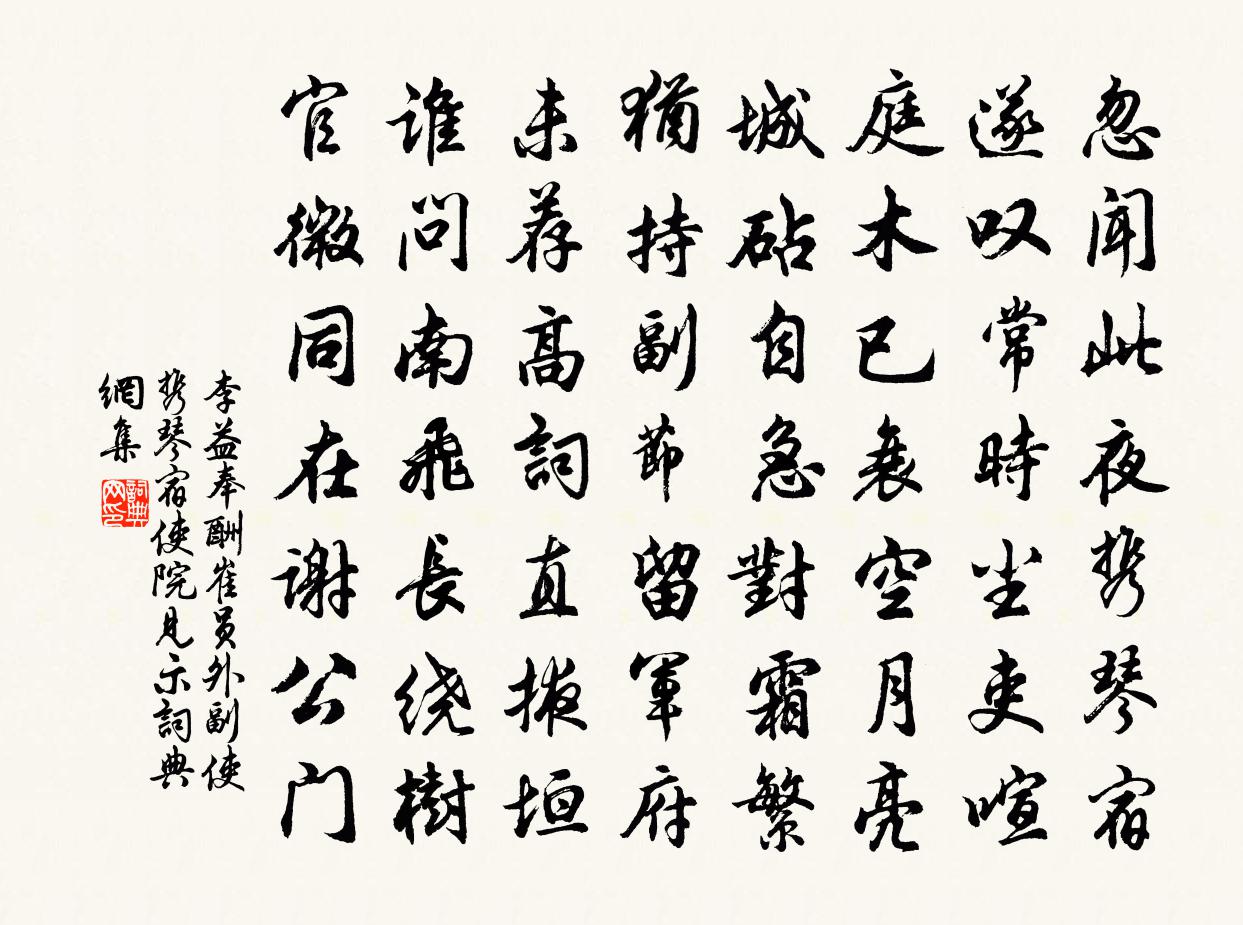 忽闻此夜携琴宿
遂叹常時尘吏喧
庭木已衰空月亮
城砧自急對霜繁
猶持副節留軍府
未荐高詞直掖垣
谁问南飛長绕樹
官微同在謝公门
李益奉酬崔员外副使
携琴宿使院見示詞典
網集
詞典网印